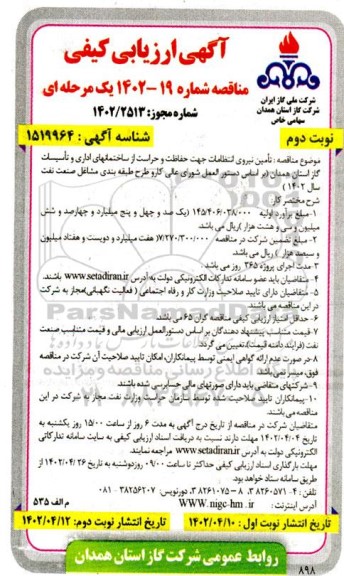 آگهی ارزیابی کیفی
مناقصه شماره ۱۹ -۱۴۰۲ یک مرحله ای
شماره مجوز: ۱۴۰۲/۲۵۱۳
شرکت ملی گاز ایران
شرکت گاز استان همدان
سهامی خاص
نوبت دوم
شناسه آگهی : ۱۵۱۹۹۶۴
موضوع مناقصه : تأمین نیروی انتظامات جهت حفاظت و حراست از ساختمانهای اداری و تأسیسات
گاز استان همدان (بر اساس دستور العمل شورای عالی کار و طرح طبقه بندی مشاغل صنعت نفت
سال ۱۴۰۲ )
شرح مختصر کار:
۱-مبلغ برآورد اولیه ۱۴۵/۴۰۶/۰۳۸/۰۰۰ (یک صد و چهل و پنج میلیارد و چهارصد و شش
میلیون و سی و هشت هزار )ریال می باشد.
۲-مبلغ تضمین شرکت در مناقصه ۷/۲۷۰/۳۰۰/۰۰۰( هفت میلیارد و دویست و هفتاد میلیون
و سیصد هزار ) ریال می باشد.
۳-مدت اجرای پروژه ۳۶۵ روز می باشد
۴-متقاضیان باید عضو سامانه تدارکات الکترونیکی دولت به آدرس www.setadiran.ir باشند.
۵-متقاضیان دارای تایید صلاحیت وزارت کار و رفاه اجتماعی ( فعالیت نگهبانی)مجاز به شرکت
در این مناقصه می باشند.
۶-حداقل امتیاز ارزیابی کیفی مناقصه گران ۶۵ می باشد.
۷-قیمت متناسب پیشنهاد دهندگان بر اساس دستورالعمل ارزیابی مالی و قیمت متناسب صنعت
نفت (فرایند دامنه قیمت)،تعیین می گردد.
۸-در صورت عدم ارائه گواهی ایمنی توسط پیمانکاران، امکان تایید صلاحیت آن شرکت در مناقصه
فوق، میسر نمی باشد.
۹-شرکتهای متقاضی باید دارای صورتهای مالی حسابرسی شده باشند.
۱۰-پیمانکاران تایید صلاحیت شده توسط سازمان حراست وزارت نفت مجاز به شرکت در این
مناقصه می باشند.
متقاضیان شرکت در مناقصه از تاریخ درج آگهی به مدت ۶ روز از ساعت ۱۵/۰۰ روز یکشنبه به
تاریخ ۱۴۰۲/۰۴/۰۴ مهلت دارند نسبت به دریافت اسناد ارزیابی کیفی به سایت سامانه تدارکاتی
الکترونیکی دولت به آدرس www.setadiran.ir مراجعه نمایند.
مهلت بارگذاری اسناد ارزیابی کیفی حداکثر تا ساعت ۰۹/۰۰ روز دوشنبه به تاریخ ۱۴۰۲/۰۴/۲۶ از
طریق سامانه ستاد خواهد بود.
تلفن : ۴-۳۸۲۶۰۵۷۱ ، ۸-۳۸۲۶۱۰۷۵ دورنویس: ۳۸۲۵۶۲۰۷-۰۸۱
آدرس اینترنت : WWW.nigc-hm.ir
م الف ۵۳۵
تاریخ انتشار نوبت اول : ۱۴۰۲/۰۴/۱۰
تاریخ انتشار نوبت دوم: ۱۴۰۲/۰۴/۱۲
روابط عمومی شرکت گاز استان همدان
۸۹۸